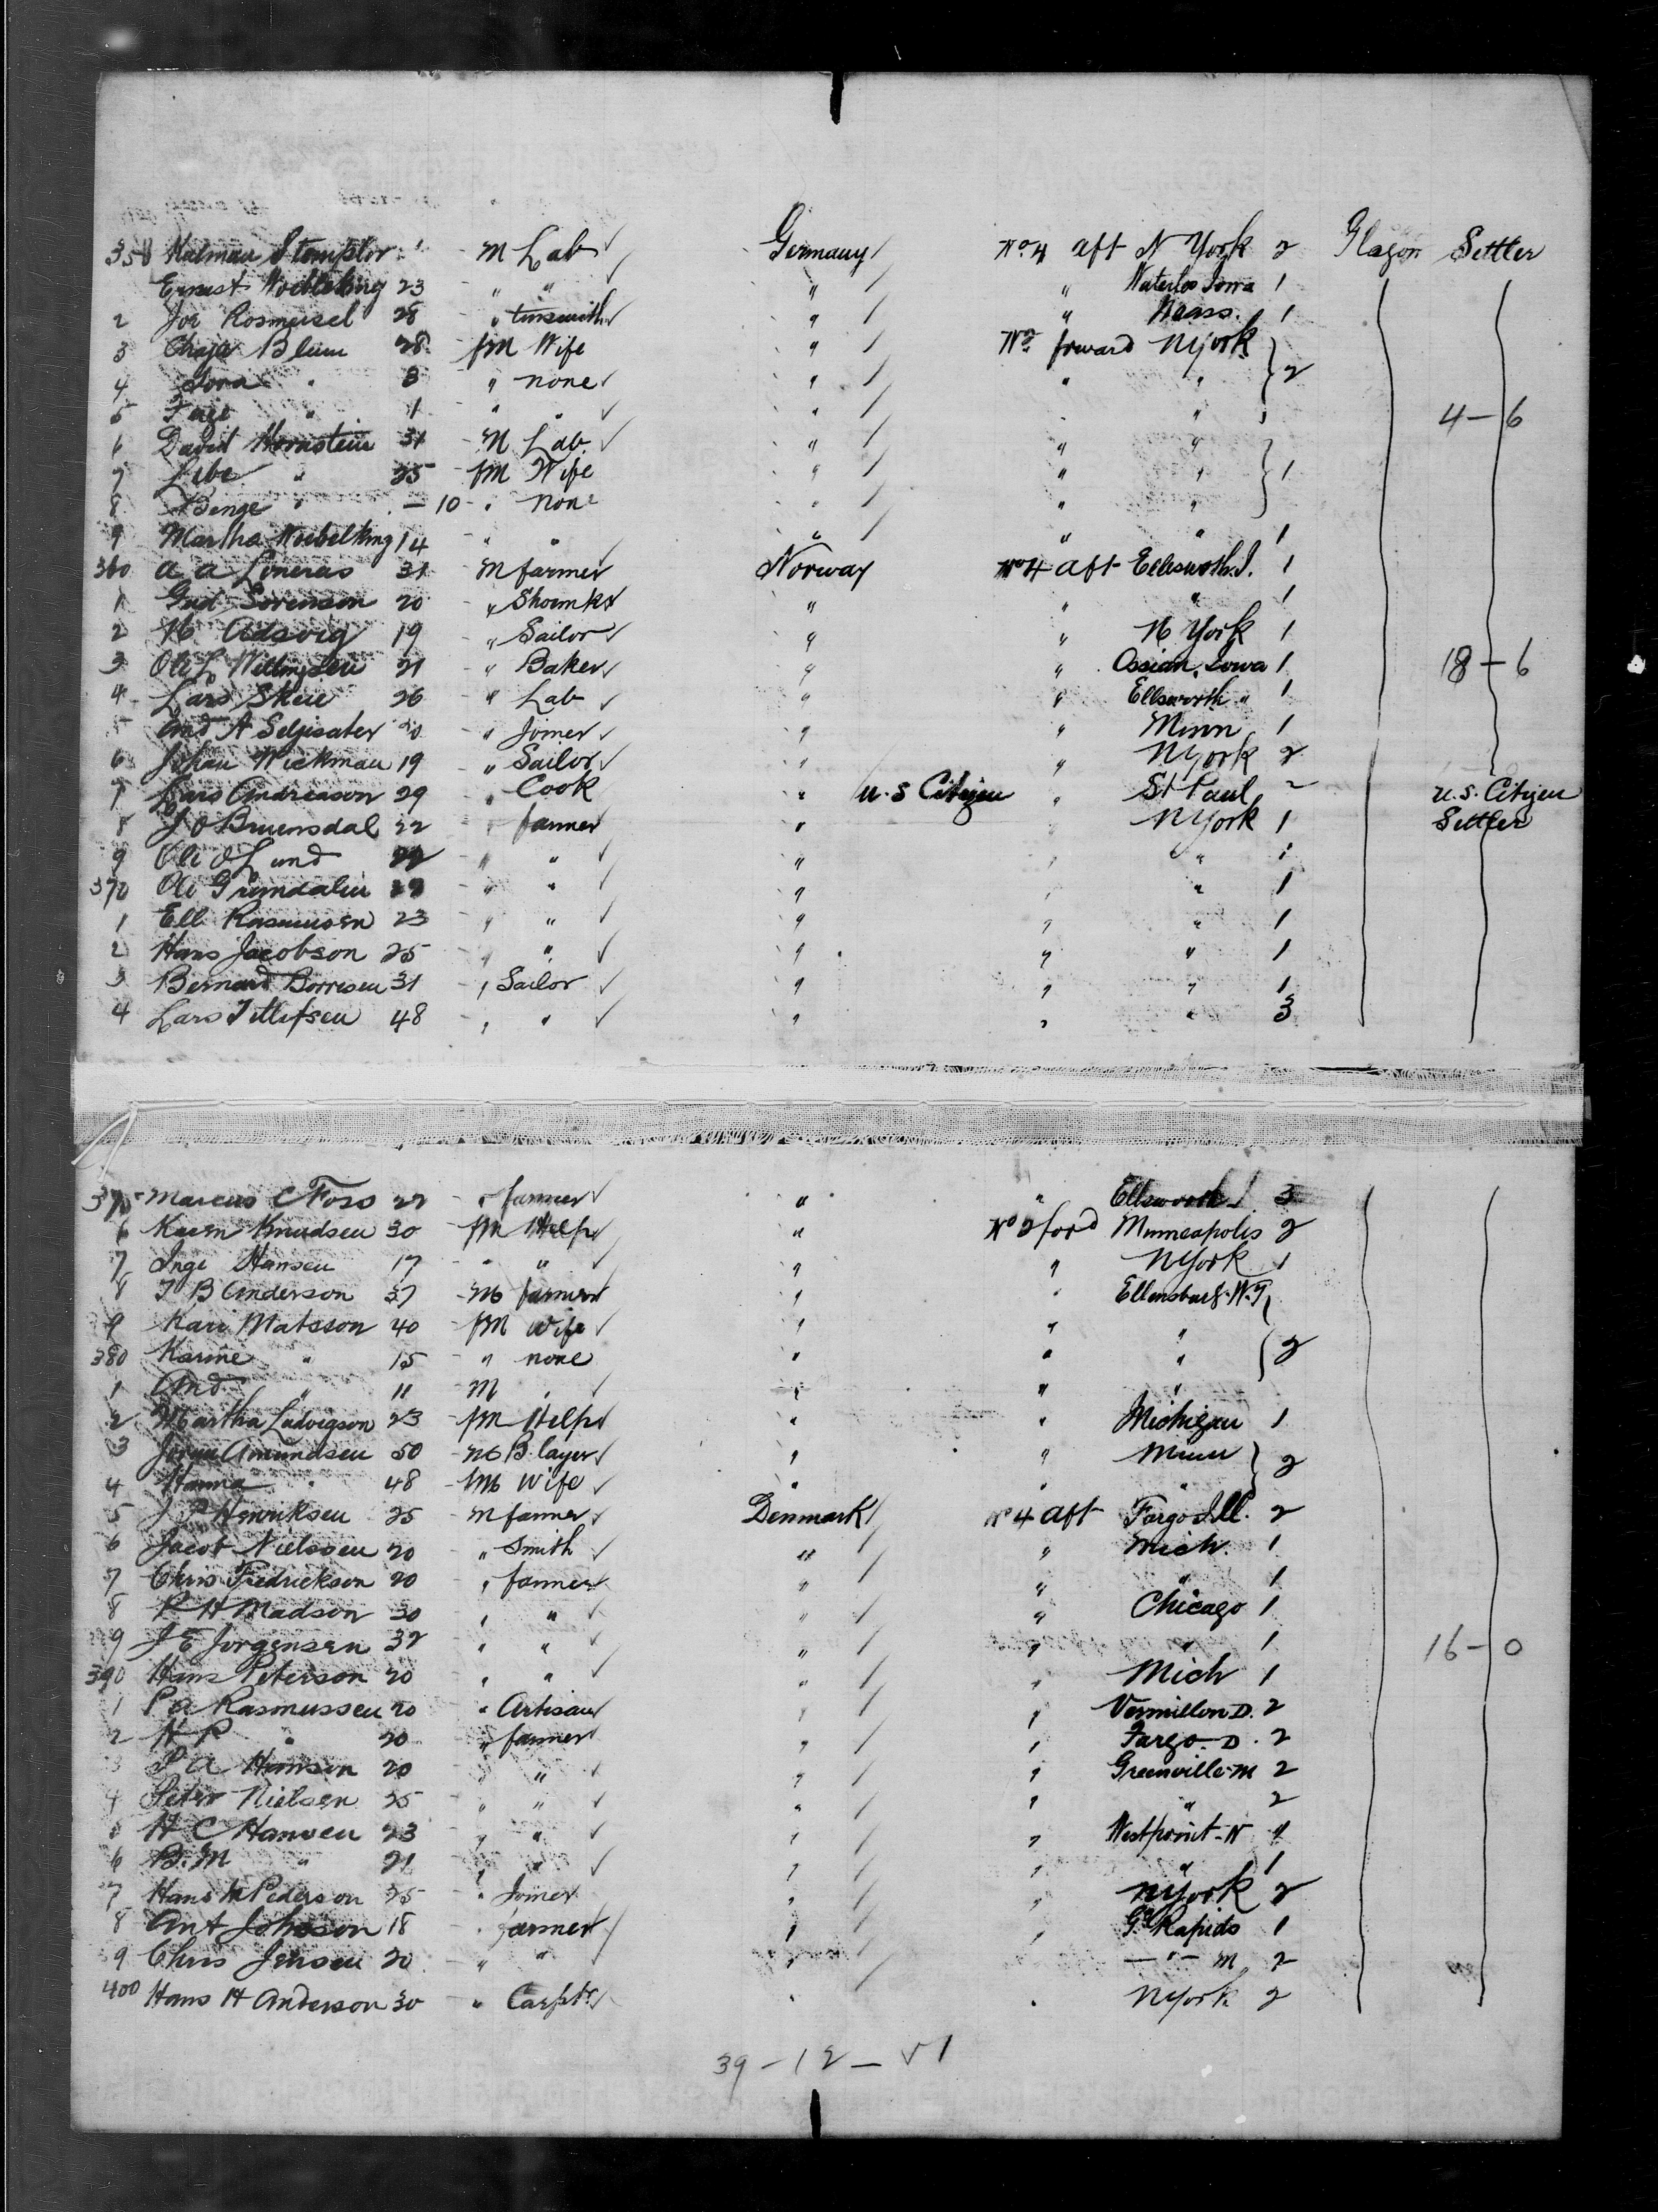 358 Kalman Stomplor M Lab Germany No 4 aft N York 2 Glagon Settler
Ernest Woebbeking 23 " " " " Waterloo Iowa 1
2 Joe Rosmeisel 28 " tinsmith " " Mass. 1
3 Chaje Blum 28 fM Wife " No 2 forward N York
4 Dora " 3 " none " " " 2
5 Feige " 1 " " " " " 4-6
6 David Hornstein 31 M Lab. " " "
7 Libe " 25 fM Wife " " " 1
8 Benge " - 10 " none " " "
9 Martha Woebelking 14 " " " " " 1
360 A A Loneras 31 M farmer Norway No 4 aft Ellsworth. I. 1
1 Gud Sorenson 20 " Shoemkr " " " 1
2 N Adsvig 19 " Sailor " " N York 1
3 Ole L Willingsen 21 " Baker " " Ossian, Iowa 1 18-6
4 Lars Skeie 26 " Lab " " Ellsworth " 1
5 And A Seljesater 20 " Joiner " " Minn 1
6 Johan Wickman 19 " Sailor " " N York 2
7 Lars Andreason 29 " Cook " U.S Citizen " St Paul 2 U.S. Citizen
8 J O Bruensdal 22 " farmer " " N York 1 Settler
9 Ole O Lund 22 " " " " " 1
370 Ole Grimdalen 22 " " " " " 1
1 Ell Rasmusen 23 " " " " " 1
2 Hans Jacobson 25 " " " " " 1
3 Bernard Borresen 31 " Sailor " " " 1
4 Lars Tellefsen 48 " " " " " 3
375 Marcus C Foss 22 " farmer " " Ellsworth I 3
6 Karen Knudsen 30 fM Help " No 2 ford Minneapolis 2
7 Inge Hansen 17 " " " " N York 1
8 T B Anderson 37 M farmer " " Ellensburg. W.T
9 Kari Matsson 40 fM Wife " " "
380 Karine " 15 " none " " " 2
1 And " 11 M " " " "
2 Martha Ludvigson 23 fM Help " " Michigan 1
3 Johan Amundsen 50 M B. layer " " Minn 2
4 Hanna " 48 fM Wife " " "
5 J P Henriksen 25 M farmer Denmark No 4 aft Fargo Ill. 2
6 Jacob Nielssen 20 " Smith " " Mich. 1
7 Chris Fredrickson 20 " farmer " " " 1
8 P H Madson 30 " " " " Chicago 1
9 J E Jorgensen 32 " " " " " 1 16-0
390 Hans Peterson 20 " " " " Mich 1
1 P A Rasmussen 20 " Artisan " " Vermillon D. 2
2 H P " 20 " farmer " " Fargo. D. 2
3 P A Hanson 20 " " " " Greenville-M 2
4 Peter Nielsen 25 " " " " " 2
5 H C Hansen 23 " " " " Westpoint-N 1
6 B. M " 21 " " " " " 1
7 Hans M Pederson 25 " Joiner " " N York 2
8 Ant Johnson 18 " farmer " " Gd Rapids 1
9 Chris Jensen 20 " " " —"— M 2
400 Hans H Anderson 30 " Carptr " " N York 2
39-12-51